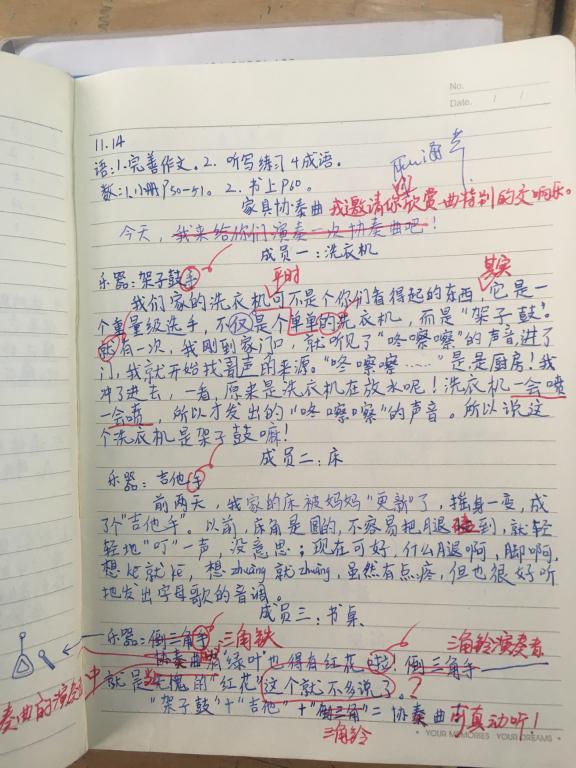 No.
Date. / /
11.14
语:1.完善作文。2. 听写练习4成语。
数:1.小册P50-51。2.书上P60。
家具协奏曲 我邀请你欣赏一曲特别的交响乐。
今天,我来给你们演奏一次协奏曲吧!
成员一:洗衣机
乐器:架子鼓手
平时
其实
我们家的洗衣机可不是个你们看得起的东西,它是一
个重量级选手,不仅是个单单的洗衣机,而是“架子鼓”。
就有一次,我刚到家门口,就听见了“咚嚓嚓”的声音,进了
门,我就开始找声的来源。“咚嚓嚓……”是是厨房!我
冲了进去,一看,原来是洗衣机在放水呢!洗衣机一会喷
一会喷,所以才发出的“咚嚓嚓”的声音。所以说这
个洗衣机是架子鼓嘛!
成员二:床
乐器:吉他手
前两天,我家的床被妈妈“更新”了,摇身一变,成
了个“吉他手”。以前,床角是圆的,不容易把腿碰到,就轻
轻地“叮”一声,没意思;现在可好,什么腿啊,脚啊,
想kē就kē,想zhuàng就zhuàng,虽然有点疼,但也很好听
地发出字母歌的音调。
成员三:书桌
乐器:倒三角手 三角铁
三角铃演奏者
协奏曲有“绿叶也得有红花啦!倒三角手
就是无愧的“红花”这个就不多说了。?
奏曲的演奏中
“架子鼓”+“吉他”+“倒三角”=协奏曲 可真动听!
三角铃
YOUR MEMORIES YOUR DREAMS